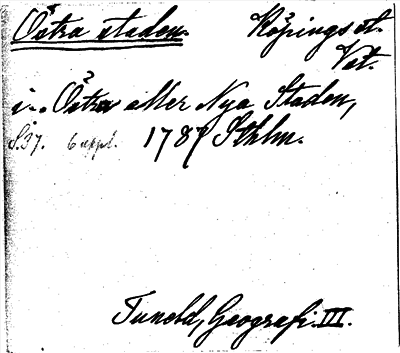 Östra staden. Köpings st.
Vst.
i.. Östra eller Nya Staden,
S. 37. 6 uppl. 1787 Sthlm.
Tuneld, Geografi. III.